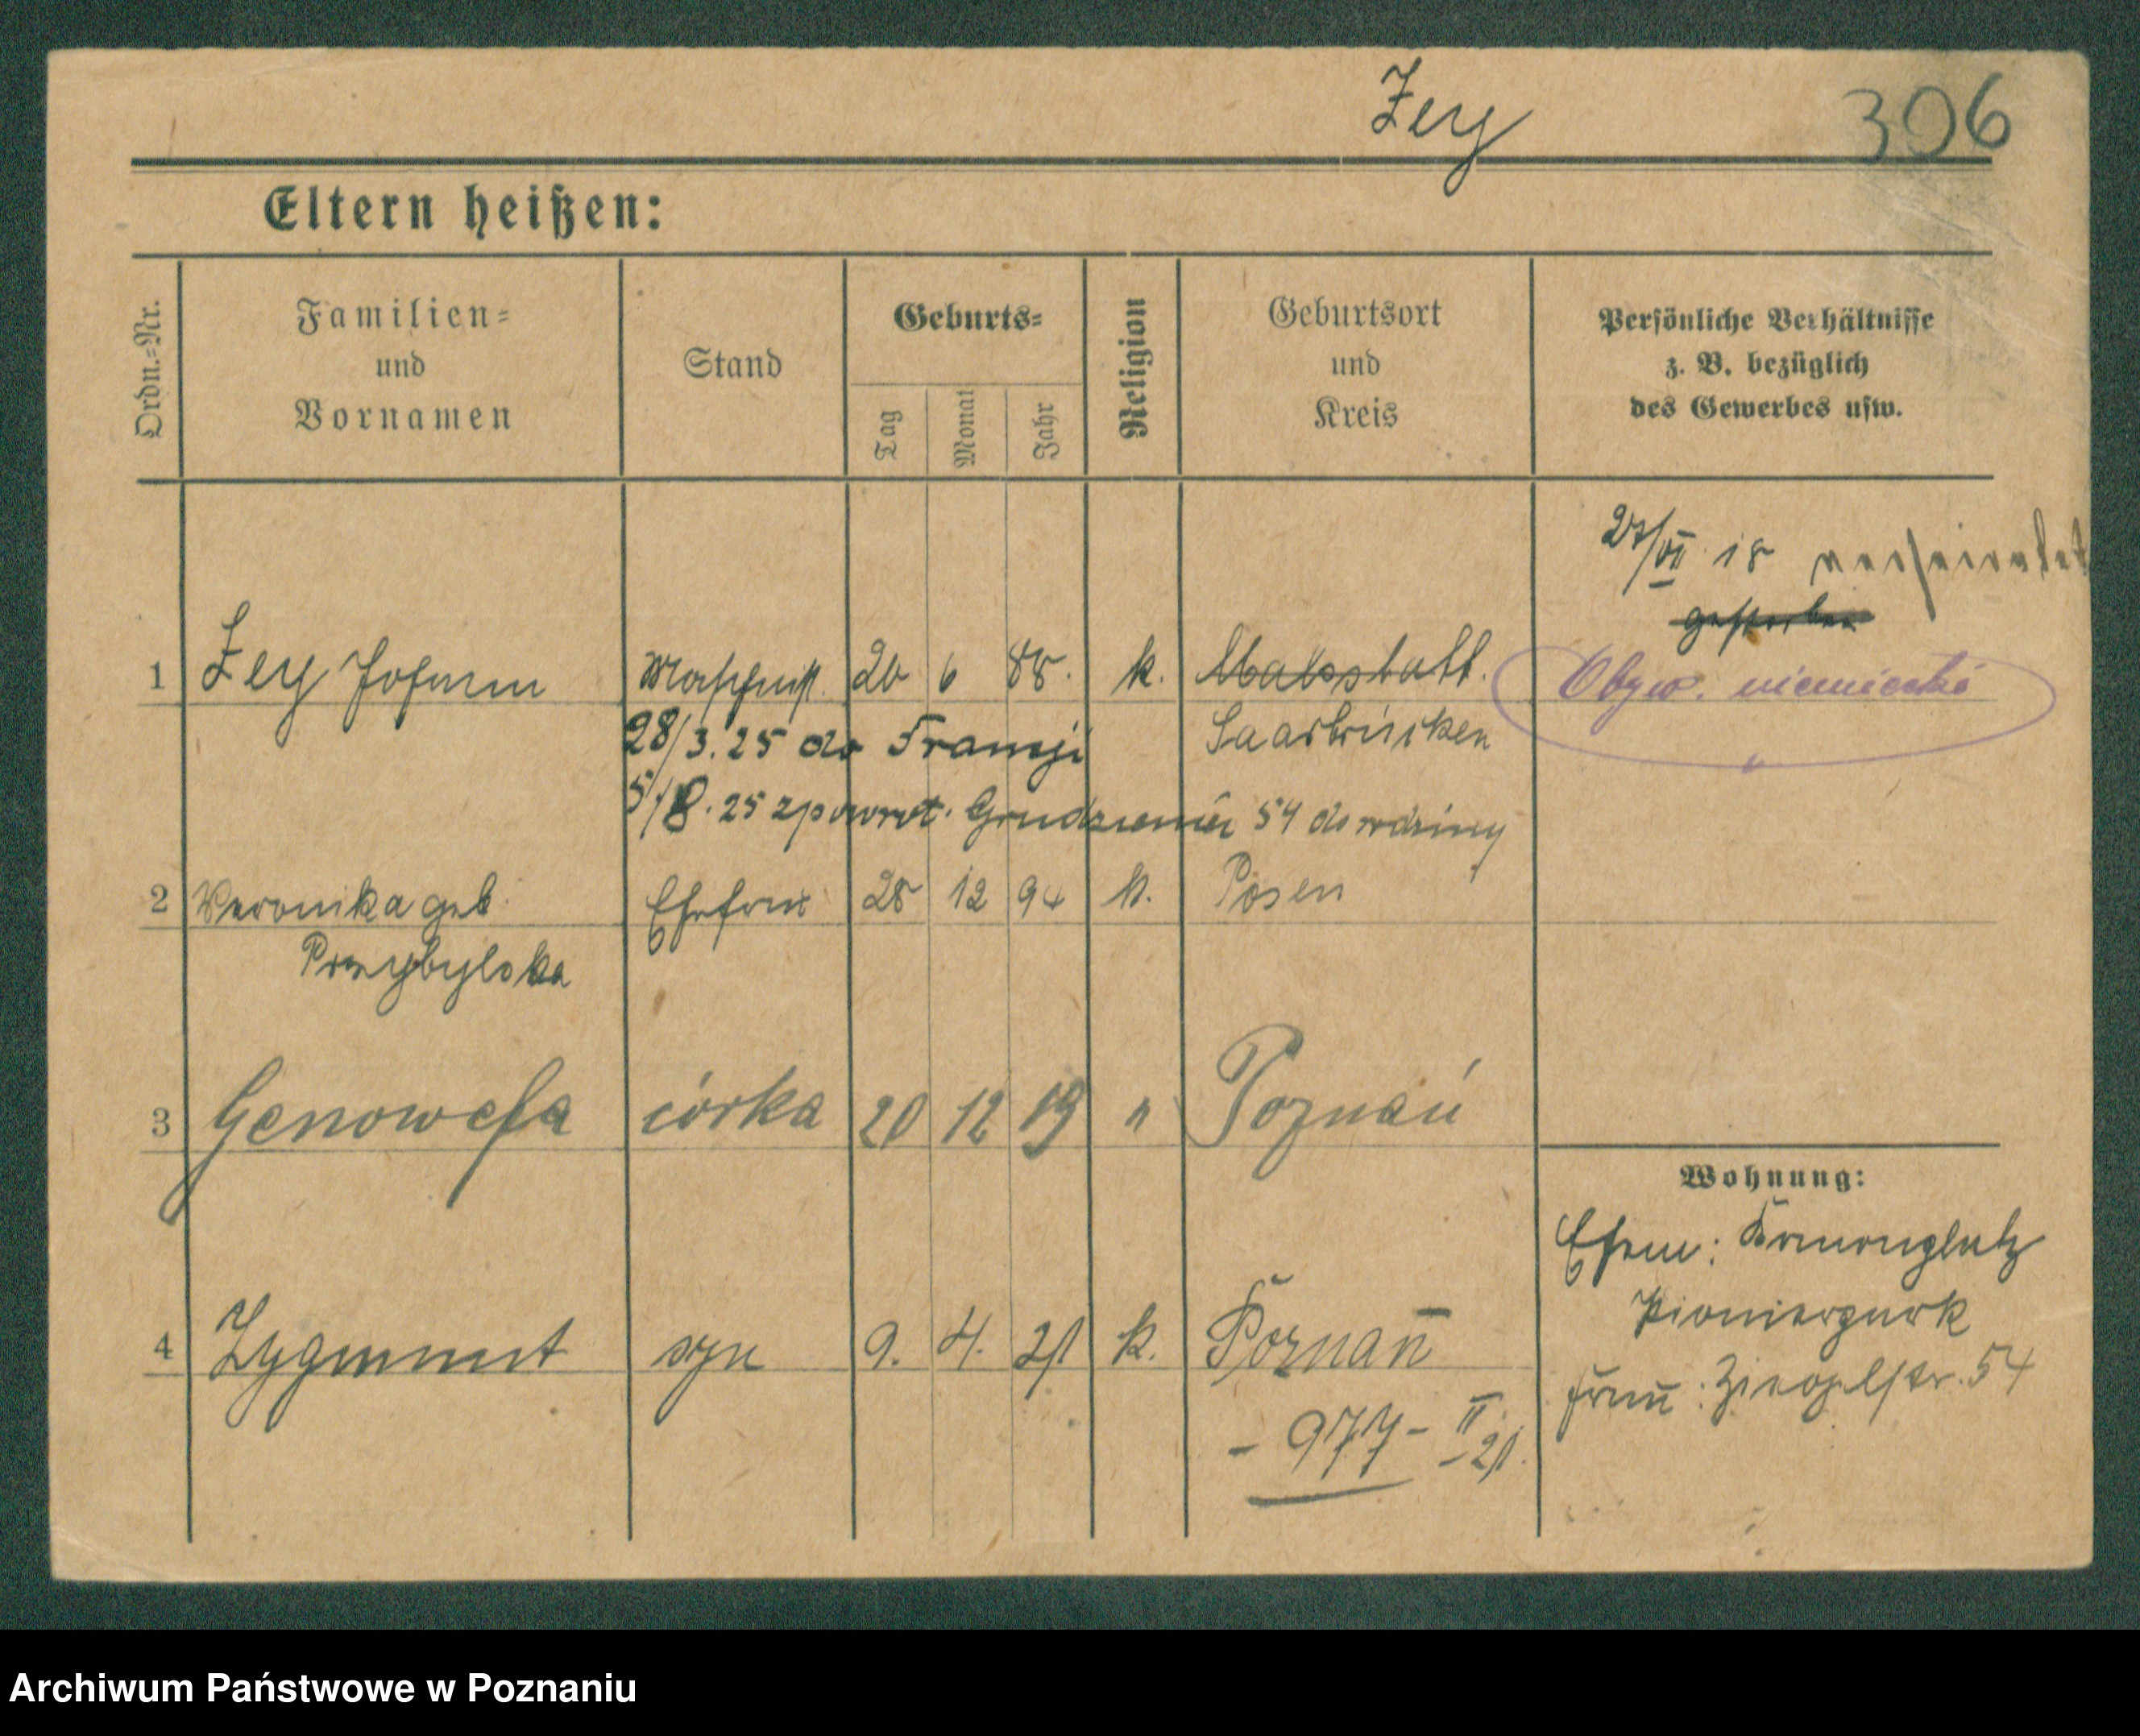 Zey 306
Eltern heißen:
Ordn.=Nr.
Familien=
und
Vornamen
Stand
Geburts=
Tag
Monat
Jahr
Religion
Geburtsort
und
Kreis
Persönliche Verhältnisse
z. B. bezüglich
des Gewerbes usw.
27/VII 18 verheiratet
gestorben
1 Zey Johann Maschinist. 26 6 88. k. Malsstatt. Obyw. niemiecki
Saarbrücken
28/3.25 do Francji
5/8.25 z powrot. Grudzieniec 54 do rodziny
2 Veronika geb. Ehefrau 28 12 94 k. Posen
Przybylska
3 Genowefa córka 20 12 19 " Poznań
4 Zygmunt syn 9. 4. 21 k. Poznań
- 977 - II 21.
Wohnung:
Ehem: Kernwerk
Pionierpark
Frau: Ziegelstr. 54
Archiwum Państwowe w Poznaniu